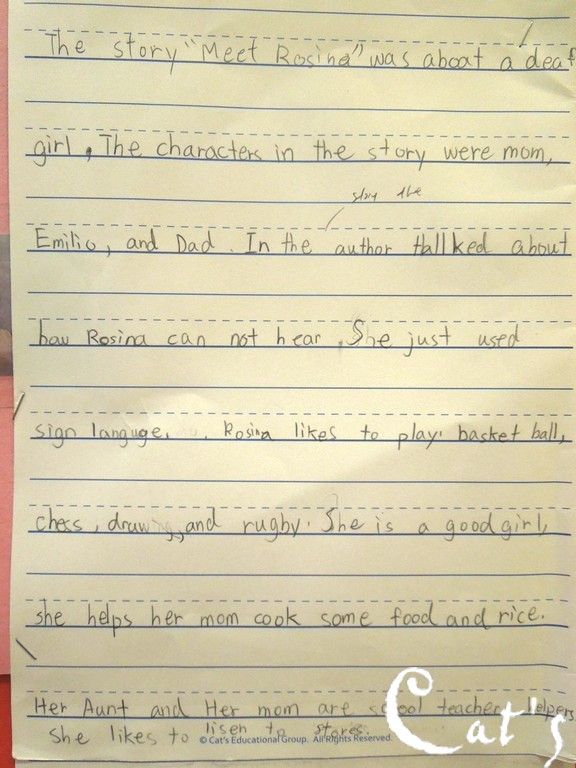 The story "Meet Rosina" was about a deaf
girl, The characters in the story were mom,
story the
Emilio, and Dad. In the author tallked about
how Rosina can not hear. She just used
sign languge. Rosina likes to play basket ball,
chess, drawing, and rugby. She is a good girl,
she helps her mom cook some food and rice.
Her Aunt and Her mom are school teacher helpers
She likes to lisen to stores.
© Cat's Educational Group. All Rights Reserved.
Cat's